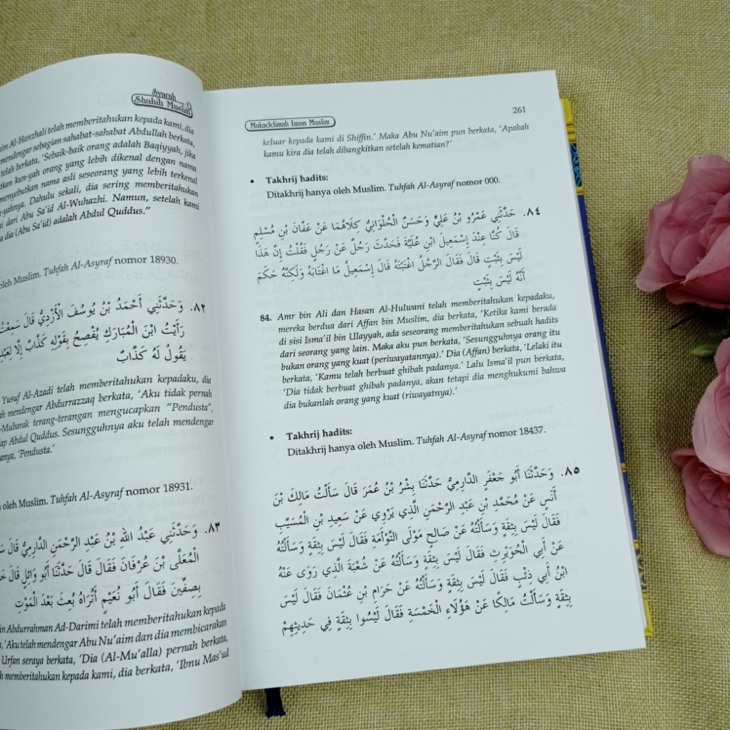 Syarah
Shahih Muslim
im Al-Hanzhali telah memberitahukan kepada kami, dia
mendengar sebagian sahabat-sahabat Abdullah berkata,
telah berkata, 'Sebaik-baik orang adalah Baqiyyah, jika
kan kun-yah orang yang lebih dikenal dengan nama
menyebutkan nama asli seseorang yang lebih terkenal
-yahnya. Dahulu sekali, dia sering memberitahukan
i dari Abu Sa'id Al-Wuhazhi. Namun, setelah kami
a dia (Abu Sa'id) adalah Abdul Quddus."
oleh Muslim. Tuhfah Al-Asyraf nomor 18930.
٨٢. وَحَدَّثَنِي أَحْمَدُ بْنُ يُوسُفَ الْأَزْدِيُّ قَالَ سَمِعْتُ
رَأَيْتُ ابْنَ الْمُبَارَكِ يُفْصِحُ بِقَوْلِهِ كَذَّابٌ إِلَّا
يَقُولُ لَهُ كَذَّابٌ
Yusuf Al-Azadi telah memberitahukan kepadaku, dia
ah mendengar Abdurrazzaq berkata, 'Aku tidak pernah
-Mubarak terang-terangan mengucapkan "Pendusta",
ap Abdul Quddus. Sesungguhnya aku telah mendengar
anya, 'Pendusta.'
oleh Muslim. Tuhfah Al-Asyraf nomor 18931.
٨٣. وَحَدَّثَنِي عَبْدُ اللهِ بْنُ عَبْدِ الرَّحْمَنِ الدَّارِمِيُّ قَالَ
الْمُعَلَّى بْنَ عُرْفَانَ فَقَالَ قَالَ حَدَّثَنَا أَبُو وَائِلٍ قَالَ
بِصِفِّينَ فَقَالَ أَبُو نُعَيْمٍ أَتُرَاهُ بُعِثَ بَعْدَ الْمَوْتِ
in Abdurrahman Ad-Darimi telah memberitahukan kepada
, 'Aku telah mendengar Abu Nu'aim dan dia membicarakan
Urfan seraya berkata, 'Dia (Al-Mu'alla) pernah berkata,
h memberitahukan kepada kami, dia berkata, 'Ibnu Mas'ud
Mukaddimah Imam Muslim
261
keluar kepada kami di Shiffin.' Maka Abu Nu'aim pun berkata, 'Apakah
kamu kira dia telah dibangkitkan setelah kematian?'
• Takhrij hadits:
Ditakhrij hanya oleh Muslim. Tuhfah Al-Asyraf nomor 000.
٨٤. حَدَّثَنِي عَمْرُو بْنُ عَلِيٍّ وَحَسَنٌ الْحُلْوَانِيُّ كِلَاهُمَا عَنْ عَفَّانَ بْنِ مُسْلِمٍ
قَالَ كُنَّا عِنْدَ إِسْمَعِيلَ ابْنِ عُلَيَّةَ فَحَدَّثَ رَجُلٌ عَنْ رَجُلٍ فَقُلْتُ إِنَّ هَذَا
لَيْسَ بِثَبْتٍ قَالَ فَقَالَ الرَّجُلُ اغْتَبْتَهُ قَالَ إِسْمَعِيلُ مَا اغْتَابَهُ وَلَكِنَّهُ حَكَمَ
أَنَّهُ لَيْسَ بِثَبْتٍ
84. Amr bin Ali dan Hasan Al-Hulwani telah memberitahukan kepadaku,
mereka berdua dari Affan bin Muslim, dia berkata, 'Ketika kami berada
di sisi Isma'il bin Ulayyah, ada seseorang memberitahukan sebuah hadits
dari seorang yang lain. Maka aku pun berkata, 'Sesungguhnya orang itu
bukan orang yang kuat (periwayatannya).' Dia (Affan) berkata, 'Lelaki itu
berkata, 'Kamu telah berbuat ghibah padanya.' Lalu Isma'il pun berkata,
'Dia tidak berbuat ghibah padanya, akan tetapi dia menghukumi bahwa
dia bukanlah orang yang kuat (riwayatnya).'
• Takhrij hadits:
Ditakhrij hanya oleh Muslim. Tuhfah Al-Asyraf nomor 18437.
٨٥. وَحَدَّثَنَا أَبُو جَعْفَرٍ الدَّارِمِيُّ حَدَّثَنَا بِشْرُ بْنُ عُمَرَ قَالَ سَأَلْتُ مَالِكَ بْنَ
أَنَسٍ عَنْ مُحَمَّدِ بْنِ عَبْدِ الرَّحْمَنِ الَّذِي يَرْوِي عَنْ سَعِيدِ بْنِ الْمُسَيَّبِ
فَقَالَ لَيْسَ بِثِقَةٍ وَسَأَلْتُهُ عَنْ صَالِحٍ مَوْلَى التَّوْأَمَةِ فَقَالَ لَيْسَ بِثِقَةٍ وَسَأَلْتُهُ
عَنْ أَبِي الْحُوَيْرِثِ فَقَالَ لَيْسَ بِثِقَةٍ وَسَأَلْتُهُ عَنْ شُعْبَةَ الَّذِي رَوَى عَنْهُ
ابْنُ أَبِي ذِئْبٍ فَقَالَ لَيْسَ بِثِقَةٍ وَسَأَلْتُهُ عَنْ حَرَامِ بْنِ عُثْمَانَ فَقَالَ لَيْسَ
بِثِقَةٍ وَسَأَلْتُ مَالِكًا عَنْ هَؤُلَاءِ الْخَمْسَةِ فَقَالَ لَيْسُوا بِثِقَةٍ فِي حَدِيثِهِمْ